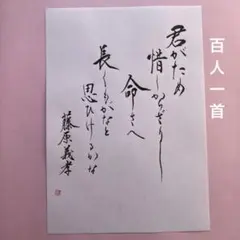 百人一首
君がため
惜しからざりし
命さへ
長くもがなと
思ひけるかな
藤原義孝